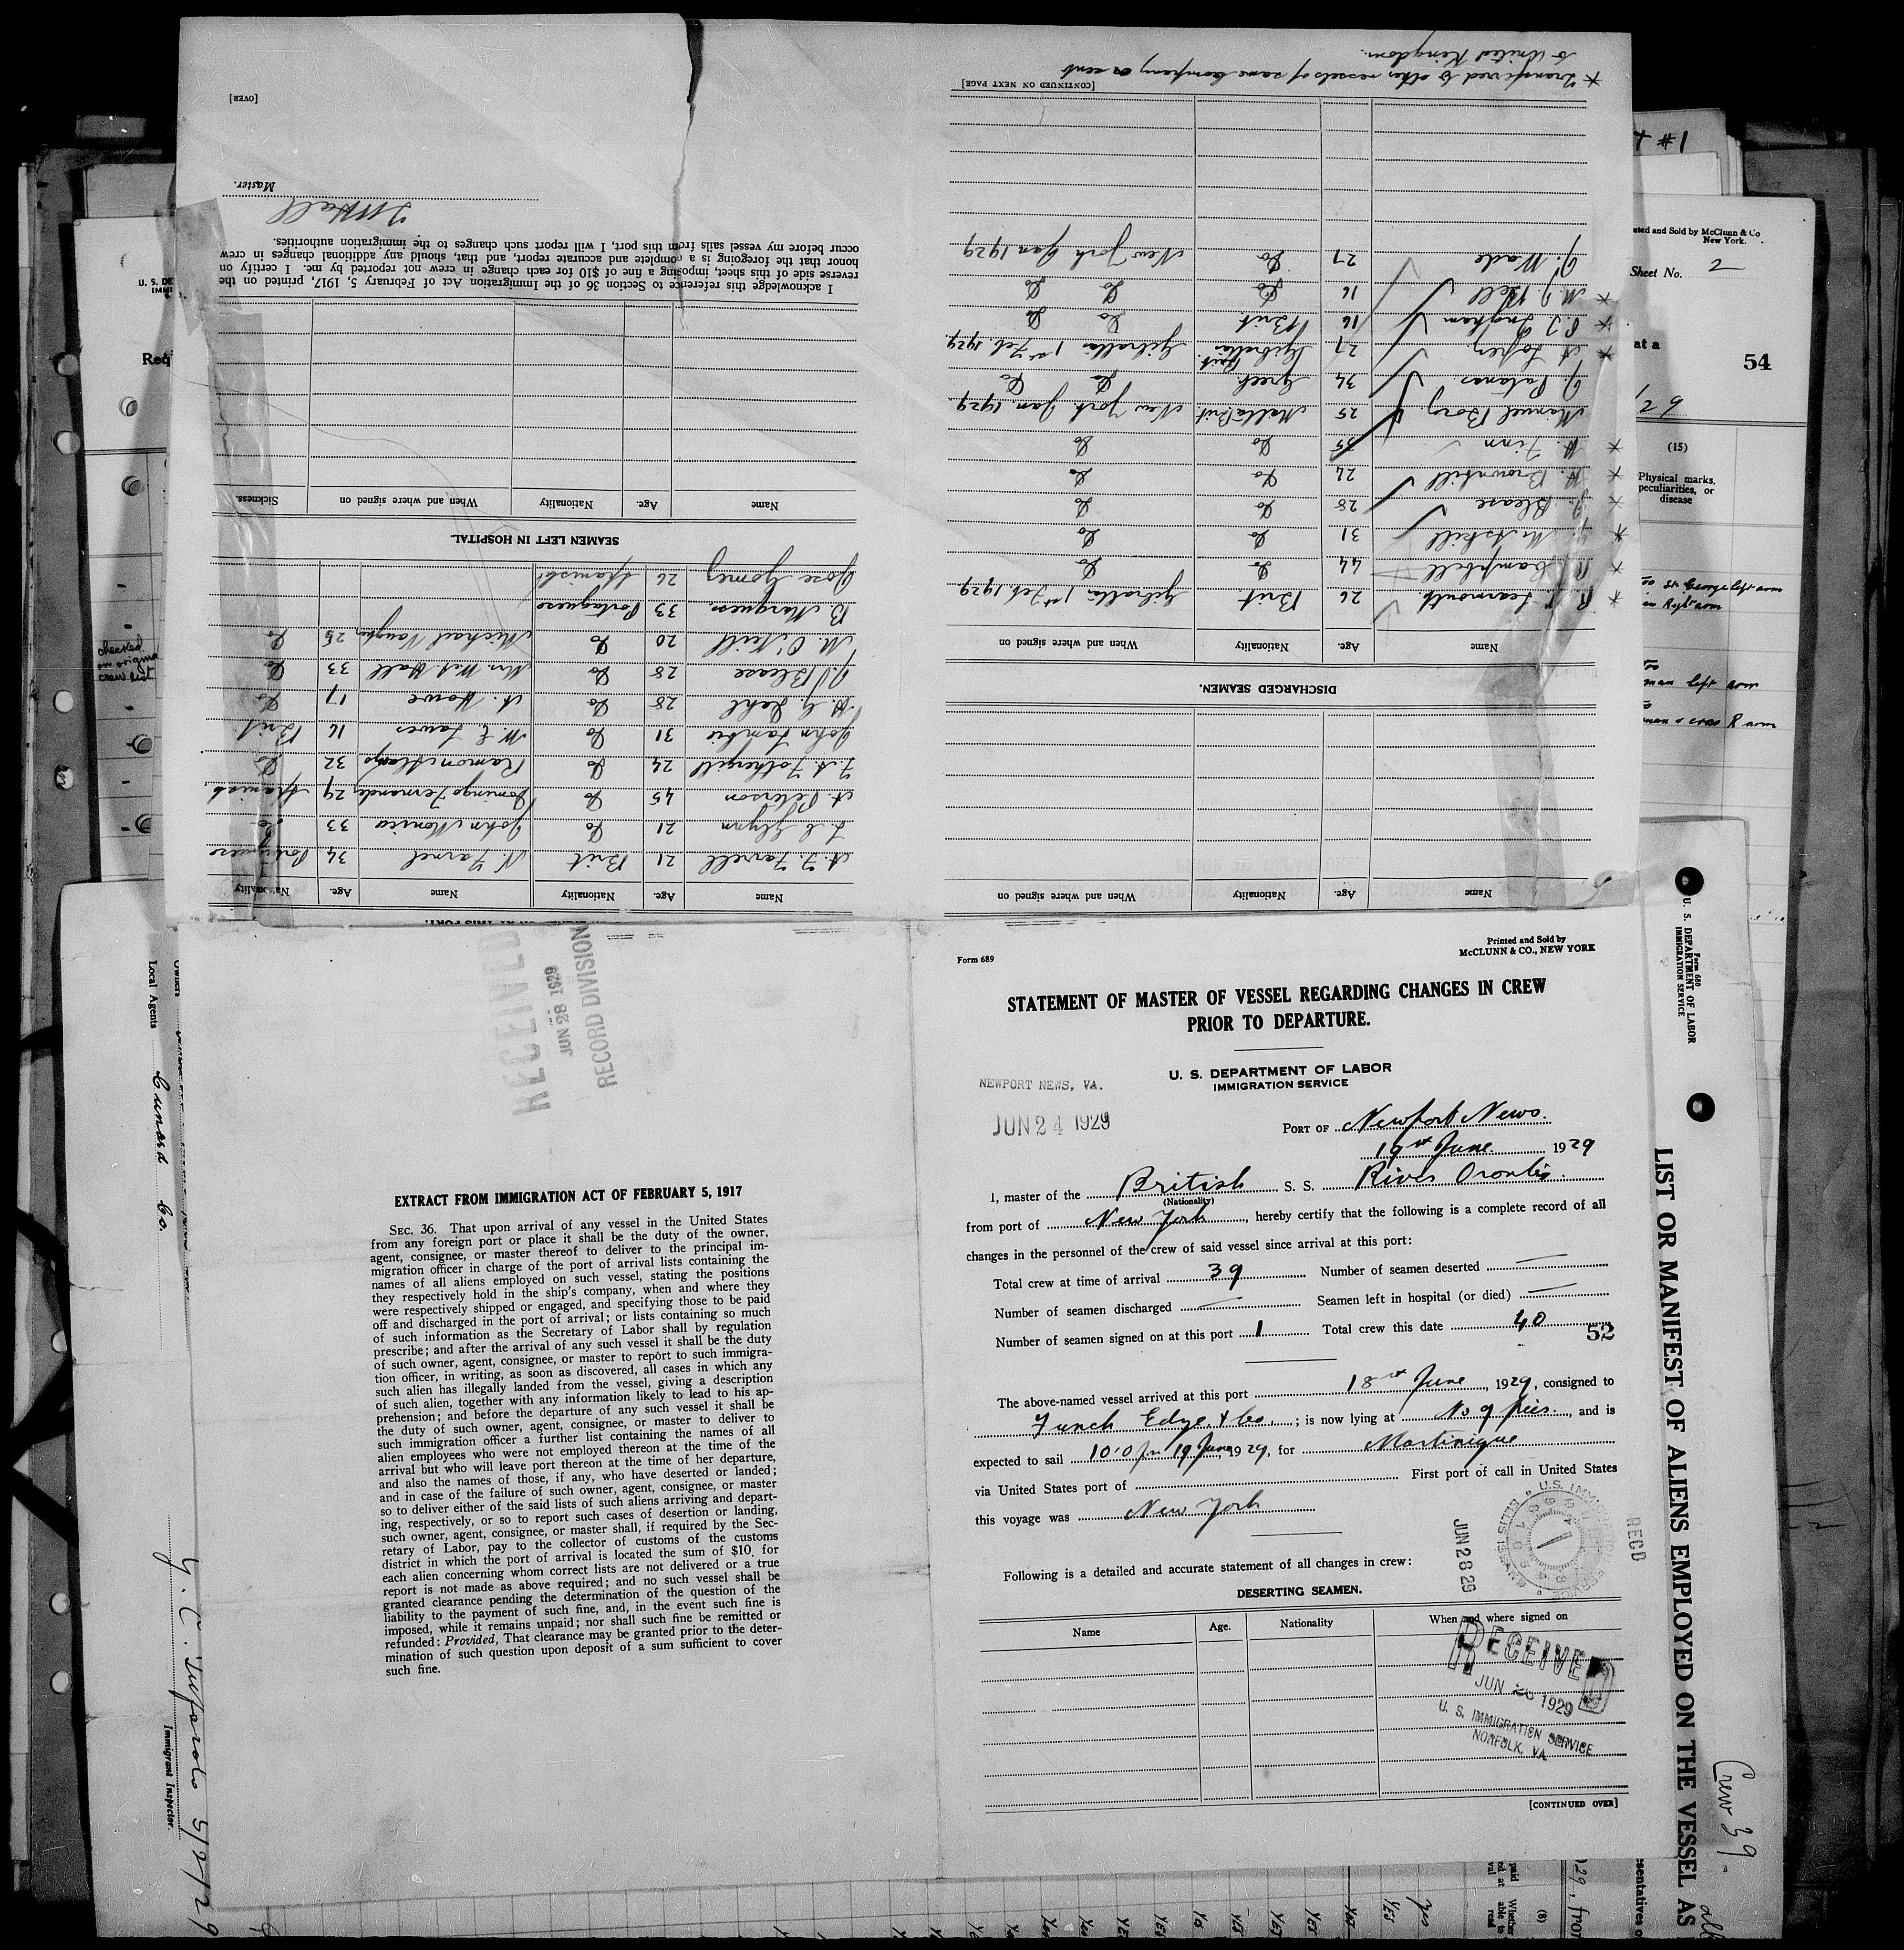 Form 689
Printed and Sold by
McCLUNN & CO., NEW YORK
STATEMENT OF MASTER OF VESSEL REGARDING CHANGES IN CREW
PRIOR TO DEPARTURE.
U. S. DEPARTMENT OF LABOR
IMMIGRATION SERVICE
NEWPORT NEWS, VA.
JUN 24 1929
PORT OF Newport News.
19th June 1929
I, master of the British S. S. River Orontes
(Nationality)
from port of New York, hereby certify that the following is a complete record of all
changes in the personnel of the crew of said vessel since arrival at this port:
Total crew at time of arrival 39 Number of seamen deserted —
Number of seamen discharged — Seamen left in hospital (or died) —
Number of seamen signed on at this port 1 Total crew this date 40
52
The above-named vessel arrived at this port 18th June, 1929, consigned to
Funch Edye & Co. ; is now lying at No 9 pier., and is
expected to sail 10.0 pm 19 June 1929, for Martinique
via United States port of First port of call in United States
this voyage was New York
Following is a detailed and accurate statement of all changes in crew:
DESERTING SEAMEN.
Name Age. Nationality When and where signed on
JUN 28 29
RECD
RECEIVED
JUN 26 1929
U. S. IMMIGRATION SERVICE
NORFOLK, VA.
[CONTINUED OVER]
RECEIVED
JUN 28 1929
RECORD DIVISION
EXTRACT FROM IMMIGRATION ACT OF FEBRUARY 5, 1917
SEC. 36. That upon arrival of any vessel in the United States
from any foreign port or place it shall be the duty of the owner,
agent, consignee, or master thereof to deliver to the principal im-
migration officer in charge of the port of arrival lists containing the
names of all aliens employed on such vessel, stating the positions
they respectively hold in the ship's company, when and where they
were respectively shipped or engaged, and specifying those to be paid
off and discharged in the port of arrival; or lists containing so much
of such information as the Secretary of Labor shall by regulation
prescribe; and after the arrival of any such vessel it shall be the duty
of such owner, agent, consignee, or master to report to such immigra-
tion officer, in writing, as soon as discovered, all cases in which any
such alien has illegally landed from the vessel, giving a description
of such alien, together with any information likely to lead to his ap-
prehension; and before the departure of any such vessel it shall be
the duty of such owner, agent, consignee, or master to deliver to
such immigration officer a further list containing the names of all
alien employees who were not employed thereon at the time of the
arrival but who will leave port thereon at the time of her departure,
and also the names of those, if any, who have deserted or landed;
and in case of the failure of such owner, agent, consignee, or master
so to deliver either of the said lists of such aliens arriving and depart-
ing, respectively, or so to report such cases of desertion or landing,
such owner, agent, consignee, or master shall, if required by the Sec-
retary of Labor, pay to the collector of customs of the customs
district in which the port of arrival is located the sum of $10 for
each alien concerning whom correct lists are not delivered or a true
report is not made as above required; and no such vessel shall be
granted clearance pending the determination of the question of the
liability to the payment of such fine, and, in the event such fine is
imposed, while it remains unpaid; nor shall such fine be remitted or
refunded: Provided, That clearance may be granted prior to the deter-
mination of such question upon deposit of a sum sufficient to cover
such fine.
Name Age. Nationality When and where signed on
DISCHARGED SEAMEN.
Name Age. Nationality When and where signed on
* R. Learmouth 26 Brit Gibraltar 1st Feb. 1929
* R. Campbell 44 Do Do
* J. McAskill 31 Do Do
* J. Blease 28 Do Do
* H. Brownhill 24 Do Do
* H. Finn 35 Do Do
Manuel Borg 25 Malta Brit. New York Jan. 1929
J. Patanas 34 Greek Do Do
* A Lopez 27 Gibraltar Brit. Gibraltar 1st Feb. 1929
* P. J. Ingham 16 Brit Do Do
* M. J. Bell 16 Do Do Do
J. Wade 27 Do New York Jan 1929
[CONTINUED ON NEXT PAGE]
* Transferred to other vessels of same Company or sent
to United Kingdom.
Name Age. Nationality Name Age. Nationality
A. F. Farrell 21 Brit N. Farrel 34 Portuguese
L. C. Glynn 21 Do John Monico 33 Do
A. Peterson 45 Do Domingo Fernandez 29 Spanish
F. A. Fothergill 24 Do Ramon Alonzo 32 Do
John Lambie 31 Do W. E. Lawes 16 Brit
H. G. Dahl 28 Do A. Howe 17 Do
J. Blease 28 Do Mrs. W. S. Hall 33 Do
M. O'Neill 20 Do Michael Vaughan 25 Do
B. Marques 33 Portuguese
Jose Gomez 26 Spanish
SEAMEN LEFT IN HOSPITAL.
Name Age. Nationality When and where signed on Sickness.
I acknowledge this reference to Section 36 of the Immigration Act of February 5, 1917, printed on the
reverse side of this sheet, imposing a fine of $10 for each change in crew not reported by me. I certify on
honor that the foregoing is a complete and accurate report, and that, should any additional changes in crew
occur before my vessel sails from this port, I will report such changes to the immigration authorities.
Master.
[OVER]
Form 680
U. S. DEPARTMENT OF LABOR
IMMIGRATION SERVICE
LIST OR MANIFEST OF ALIENS EMPLOYED ON THE VESSEL AS
Crew 39
Sheet No. 2
New York.
at a
54
(15)
Physical marks,
peculiarities, or
disease
checked
on original
crew list
Req
Local Agents Cunard Co.
Immigrant Inspector.